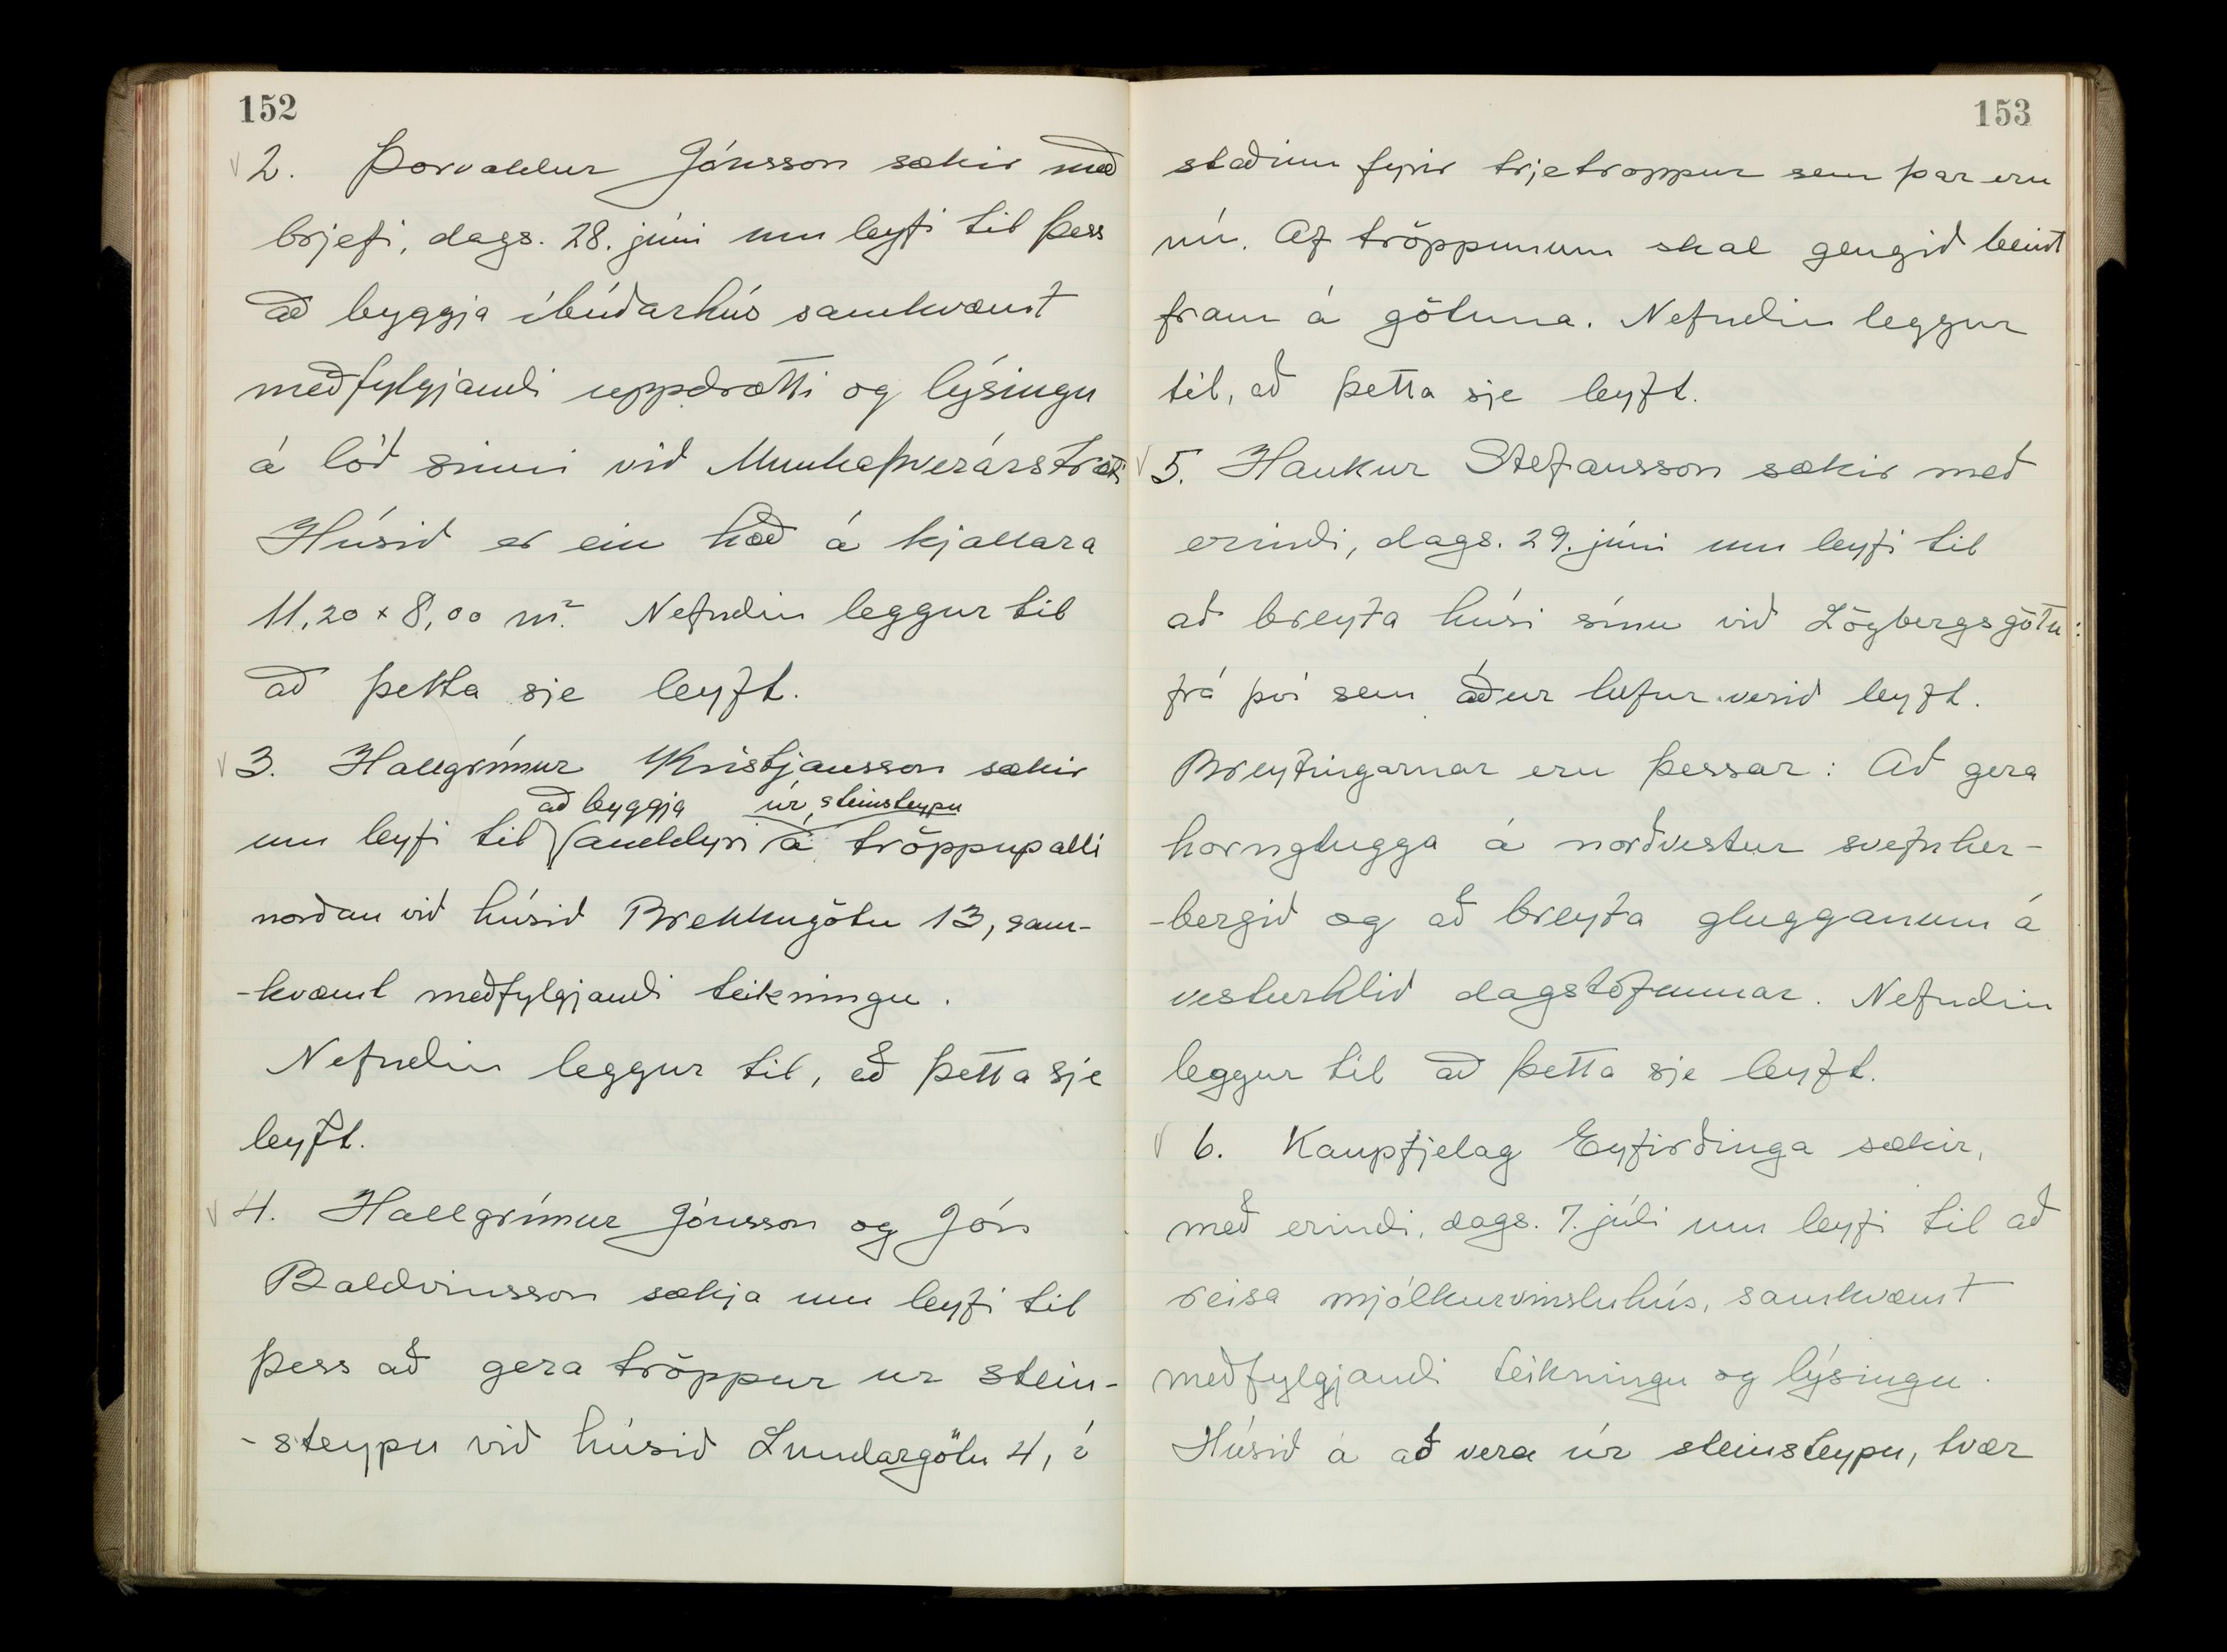 152
2. Þorvaldur Jónsson sækir með
brjefi, dags. 28. júni um leyfi til þess
að byggja íbúðarhús samkvæmt
meðfylgjandi uppdrætti og lýsingu
á lóð sinni við Munkaþverárstræti
Húsið er ein hæð á kjallara
11,20 x 8,00 m². Nefndin leggur til
að þetta sje leyft.
3. Hallgrímur Kristjansson sækir
að byggja úr steinsteypu
um leyfi til anddyri á tröppupalli
norðan við húsið Brekkugötu 13, sam-
-kvæmt meðfylgjandi teikningu.
Nefndin leggur til, að þetta sje
leyft.
4. Hallgrímur Jónsson og Jón
Baldvinsson sækja um leyfi til
þess að gera tröppur ur stein-
-steypu við húsið Lundargötu 4, í
153
staðinn fyrir trjetroppur sem þar eru
nú. Af tröppunum skal gengið beint
fram á götuna. Nefndin leggur
til, að þetta sje leyft.
5. Haukur Stefansson sækir með
erindi, dags. 29. júni um leyfi til
að breyta húsi sínu við Lögbergsgötu:
frá því sem áður hefur verið leyft.
Breytingarnar eru þessar: Að gera
hornglugga á norðvestur svefnher-
-bergið og að breyta glugganum á
vesturhlið dagstofunnar. Nefndin
leggur til að þetta sje leyft.
6. Kaupfjelag Eyfirðinga sækir,
með erindi, dags. 7. júli um leyfi til að
reisa mjólkurvinsluhús, samkvæmt
meðfylgjandi teikningu og lýsingu.
Húsið á að vera úr steinsteypu, tvær